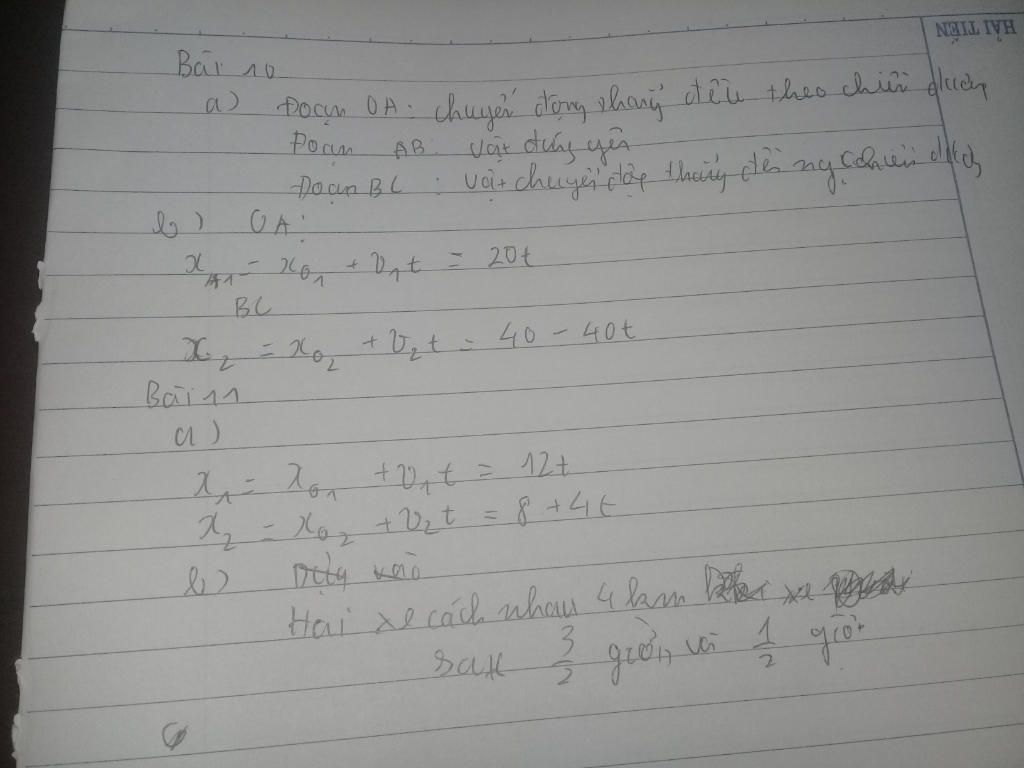 HẢI TIẾN
Bài 10
a) Đoạn OA: chuyển động thẳng đều theo chiều dương
Đoạn AB: vật đứng yên
Đoạn BC: vật chuyển động thẳng đều ngược chiều dương
b) OA:
x₁ = x₀₁ + v₁t = 20t
BC
x₂ = x₀₂ + v₂t = 40 - 40t
Bài 11
a)
x₁ = x₀₁ + v₁t = 12t
x₂ = x₀₂ + v₂t = 8 + 4t
b)
Hai xe cách nhau 4km xe
sau 3/2 giờ và 1/2 giờ